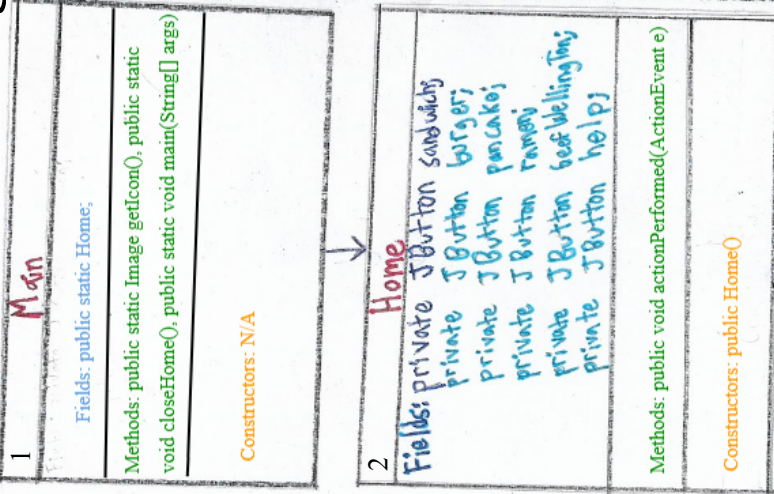 1
Main
Fields: public static Home;
Methods: public static Image getIcon(), public static
void closeHome(), public static void main(String[] args)
Constructors: N/A
2
Home
Fields: private JButton sandwich;
private JButton burger;
private JButton pancake;
private JButton ramen;
private JButton beefWellington;
private JButton help;
Methods: public void actionPerformed(ActionEvent e)
Constructors: public Home()